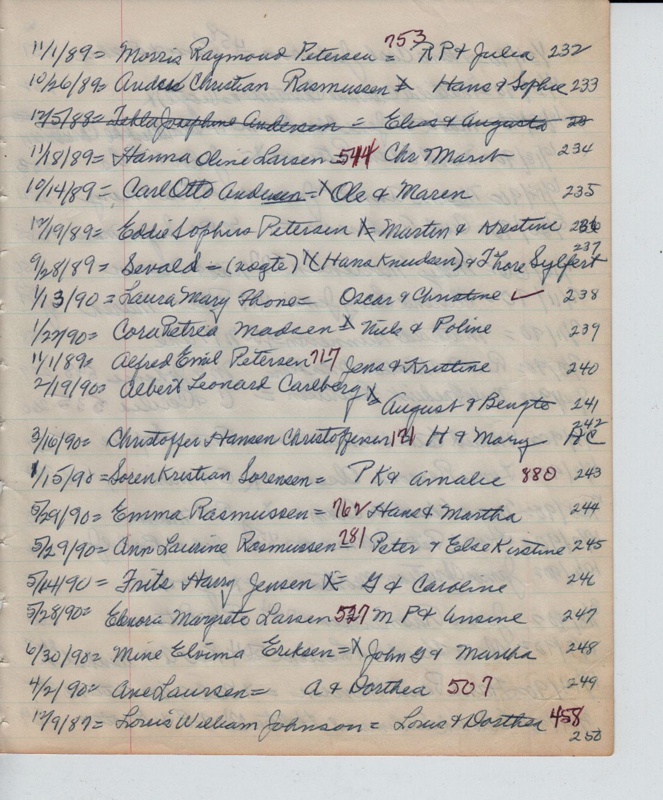 11/1/89 = Morris Raymond Petersen = 753 RP & Julia 232
10/26/89 = Christian Rasmussen X Hans & Sophie 233
12/5/88 = Tekla Josephine Andersen = Elias & Augusta
11/18/89 = Hanna Oline Larsen = 544 Chr & Marit 234
10/14/89 = Carl Otto Andersen = X Ole & Maren 235
12/19/89 = Eddie Sophus Petersen X = Martin & Kirstine 236
237
9/28/89 = Sevald = (nogte) X (Hans Knudsen) & Thore Sylfert
1/13/90 = Laura Mary Thone = Oscar & Christine ✓ 238
1/27/90 = Cora Petrea Madsen X Niels & Poline 239
11/1/89 = Alfred Emil Petersen 717 Jens & Kristine 240
2/19/90 = Albert Leonard Carlberg X
= August & Bengte 241
242
3/16/90 = Christoffer Hansen Christoffersen 171 H & Mary
1/15/90 = Soren Kristian Sorensen = PK & Amalie 880 243
5/29/90 = Emma Rasmussen = 762 Hans & Martha 244
5/29/90 = Ann Laurine Rasmussen = 781 Peter & Else Kirstine 245
5/14/90 = Frits Harry Jensen X = G & Caroline 246
5/28/90 = Elenora Margrete Larsen 527 M P & Ansine 247
6/30/90 = Mine Elvima Eriksen = X John G & Martha 248
4/2/90 = Ane Laursen = A & Dorthea 507 249
12/9/87 = Louis William Johnson = Louis & Dorthea 458
250